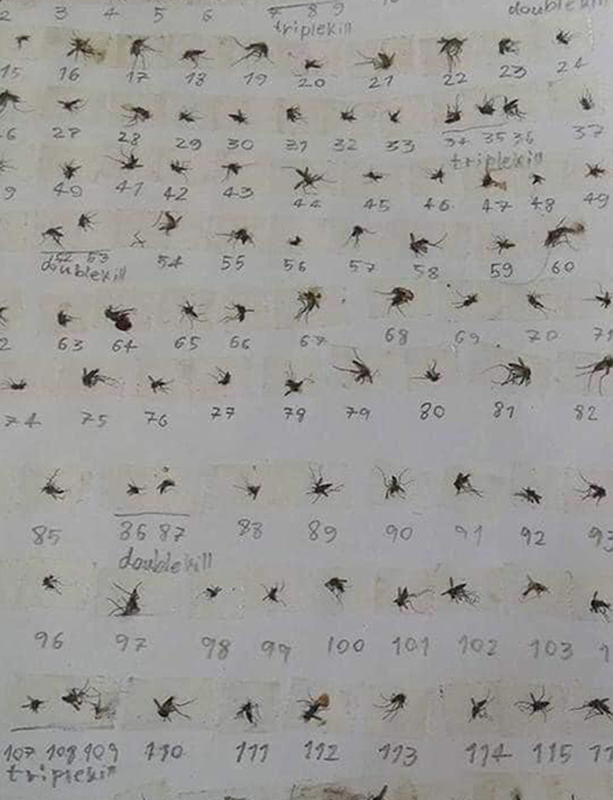 2 3 4 5 6 7 8 9
triplekill doublekill
15 16 17 18 19 20 21 22 23 24
6 27 28 29 30 31 32 33 34 35 36 37
triplekill
9 40 41 42 43 44 45 46 47 48 49
52 53 54 55 56 57 58 59 60
doublekill
2 63 64 65 66 67 68 69 70 71
74 75 76 77 78 79 80 81 82
85 86 87 88 89 90 91 92 93
doublekill
96 97 98 99 100 101 102 103 1
107 108 109 110 111 112 113 114 115 11
triplekill